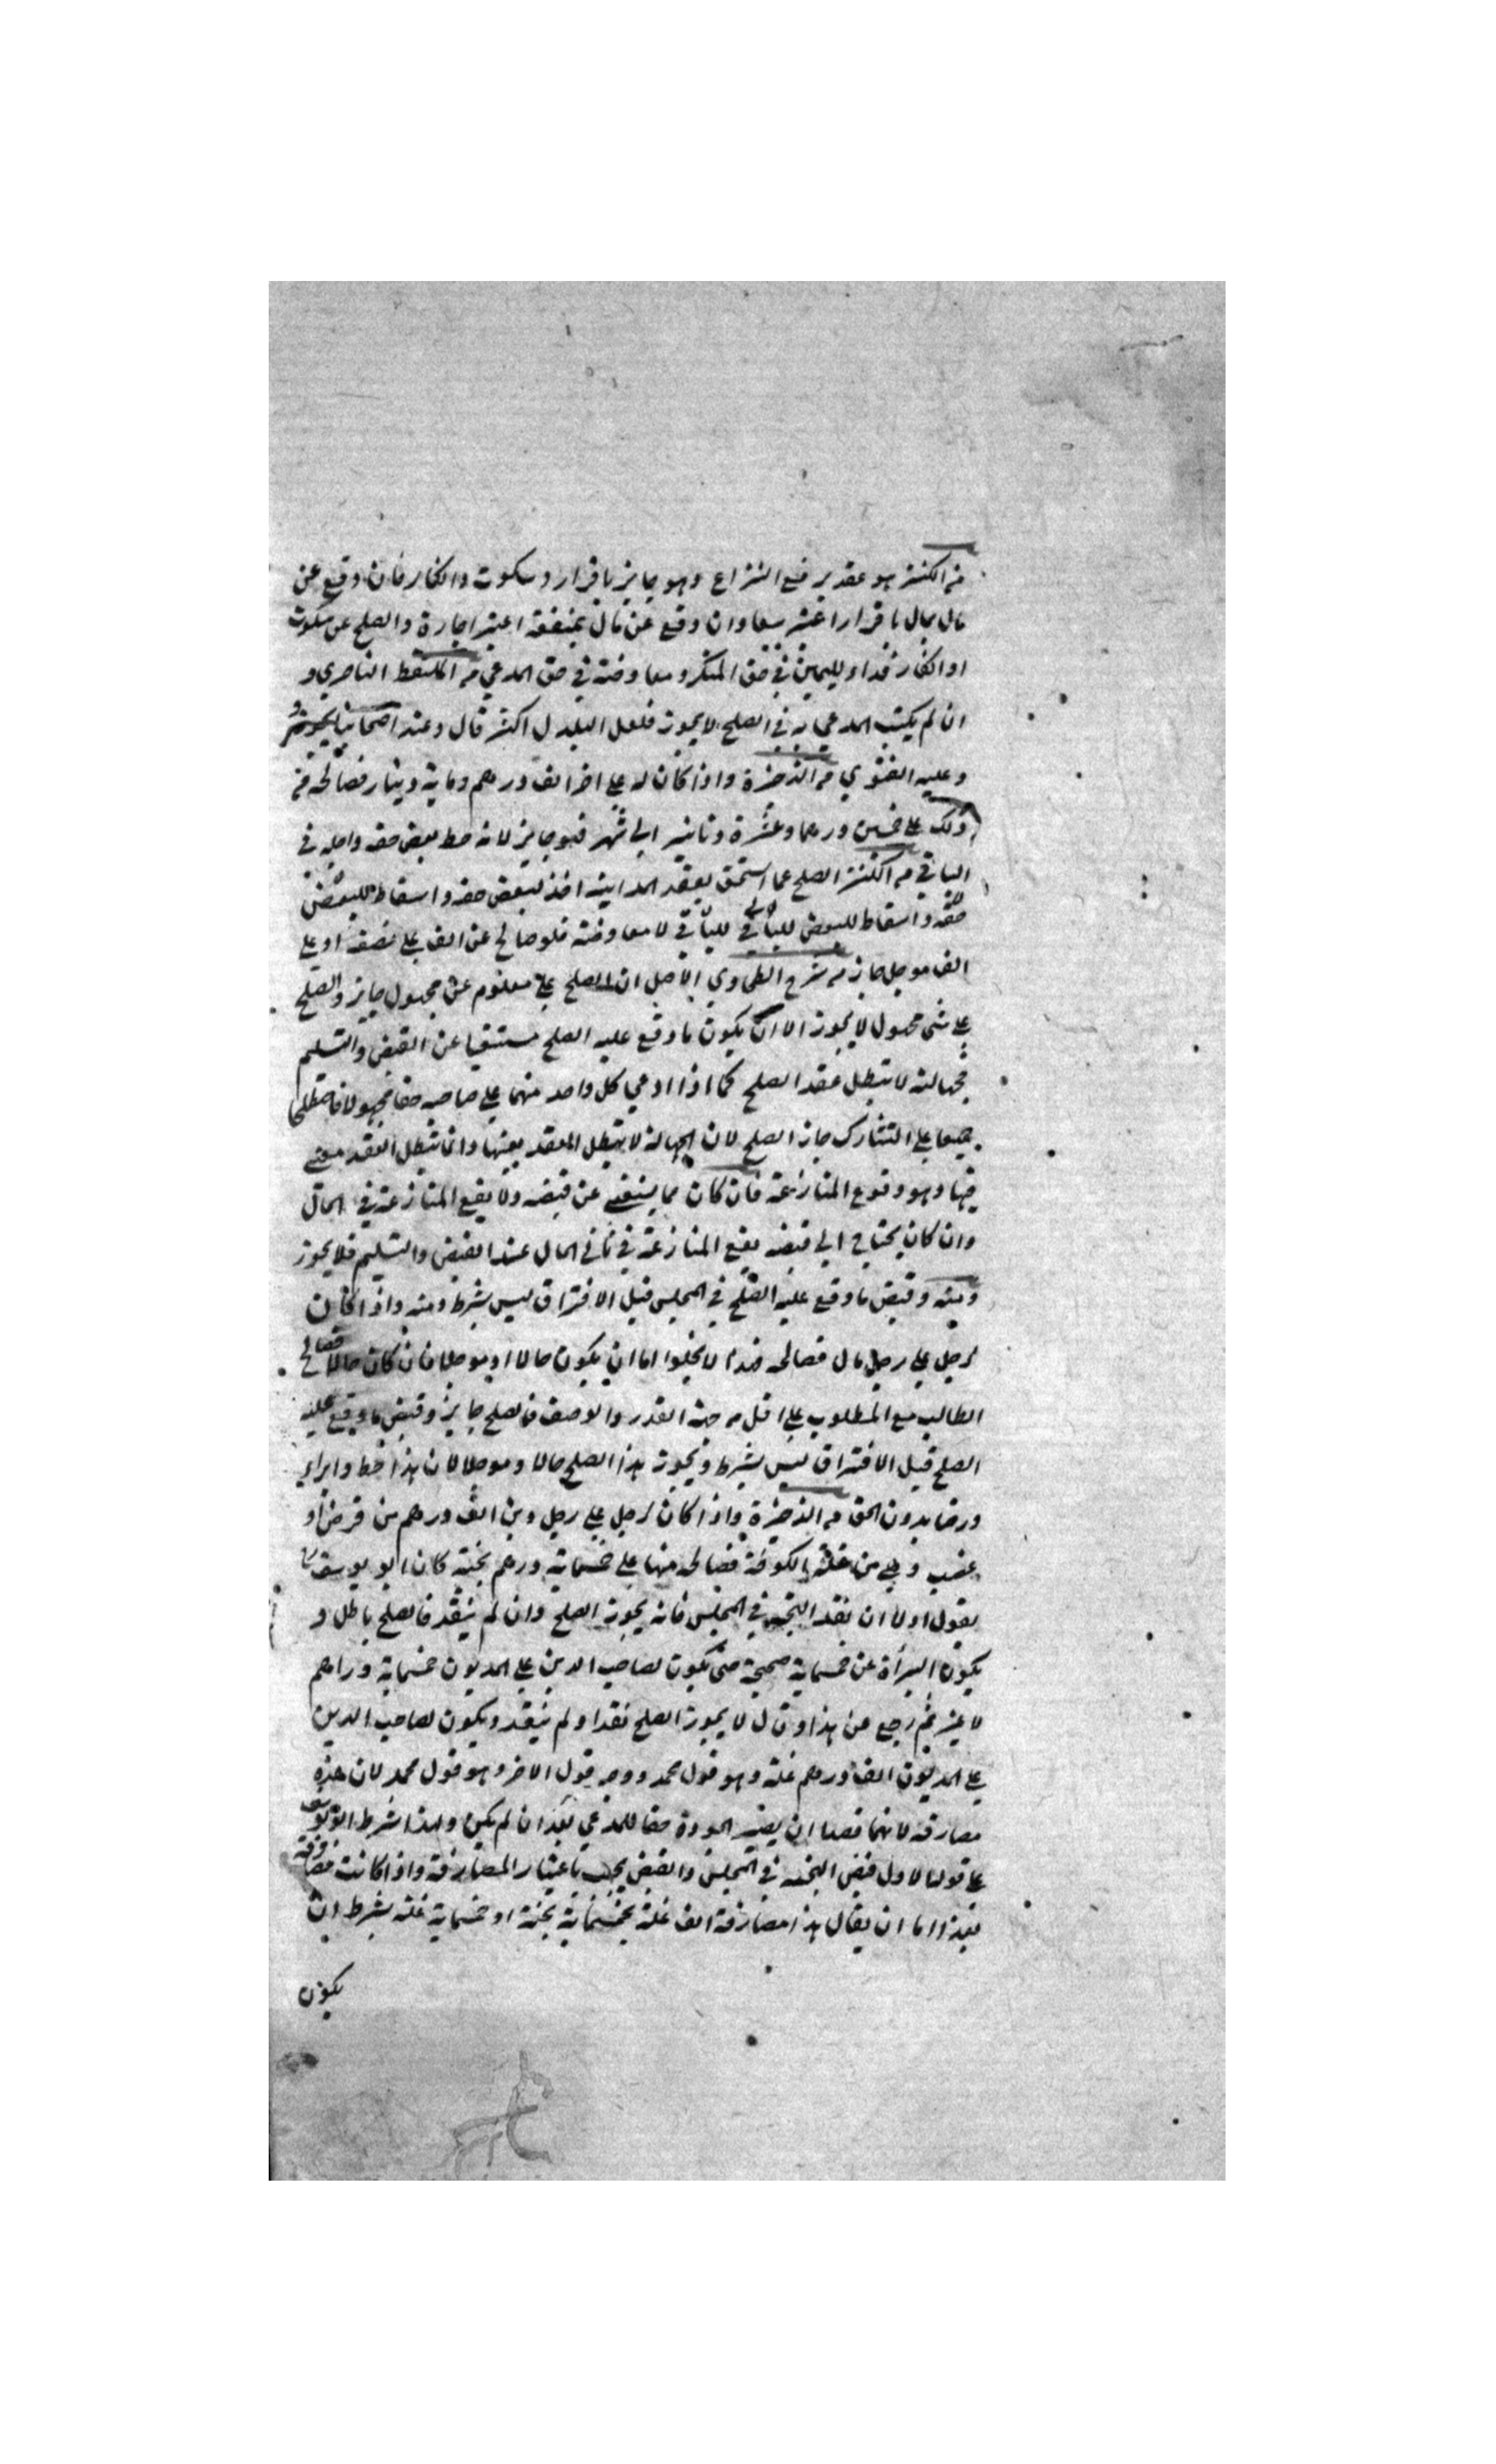 من الكنز هو عقد يرفع النزاع وهو جايز باقرار وسكوت وانكار فان وقع عن
مال بمال باقرار اعتبر بيعا وان وقع عن مال بمنفعة اعتبر اجارة والصلح عن سكوت
او انكار فداء لليمين في حق المنكر ومعاوضة في حق المدعي من الملتقط الناصري و
ان لم يكتب المدعي به في الصلح لا يجوز فلعل البلدل اكثر قال وعند اصحابنا يجوز
وعليه الفتوي من الذخيرة واذا كان له علي اخر الف درهم وماية دينار فصالحه من
ذلك علي خمسين درهما وعشرة دنانير الي شهر فهو جايز لانه حط بعض حقه واجله في
الباقي من الكنز الصلح عما استحق بعقد المداينة اخذ لبعض حقه واسقاط للبعض
حقه واسقاط للبعض للباقي للباقي لا معاوضة فلو صالح عن الف علي نصفه او علي
الف موجل جاز من شرح الطحاوي الاصل ان الصلح علي معلوم عن مجهول جايز والصلح
علي شي مجهول لا يجوز الا ان يكون ما وقع عليه الصلح مستغنيا عن القبض والتسليم
فجهالته لا تبطل عقد الصلح كما اذا ادعي كل واحد منهما علي صاحبه حقا مجهولا فاصطلحا
جميعا علي التتارك جاز الصلح لان الجهالة لا تبطل العقد بعينها وانما تبطل العقد معني
فيها وهو وقوع المنازعة فان كان مما يستغني عن قبضه ولا يقع المنازعة في الحال
وان كان يحتاج الي قبضه يقع المنازعة في ثاني الحال عند القبض والتسليم فلا يجوز
ومنه وقبض ما وقع عليه الصلح في المجلس قبل الافتراق ليس بشرط ومنه واذا كان
لرجل علي رجل مال فصالحه فهذا لا يخلوا اما ان يكون حالا او موجلا فان كان حالا فصالح
الطالب مع المطلوب علي اقل من جهة القدر والوصف فالصلح جايز وقبض ما وقع عليه
الصلح قبل الافتراق ليس بشرط ويجوز هذا الصلح حالا وموجلا لان هذا حط وابراء
ورضا بدون الحق من الذخيرة واذا كان لرجل علي رجل دين الف درهم من قرض او
غصب وهي من غلة الكوفة فصالحه منها علي خمسماية درهم بخية كان ابو يوسف
يقول اولا ان نقد البخية في المجلس فانه يجوز الصلح وان لم ينقد فالصلح باطل و
يكون البرأة عن خمسماية صحيحة حتي يكون لصاحب الدين علي المديون خمسماية دراهم
لا غير ثم رجع عن هذا وقال لا يجوز الصلح نقد او لم ينقد ويكون لصاحب الدين
علي المديون الف درهم غلة وهو قول محمد ووجه قول الاخر وهو قول محمد لان هذه
مصارفة لانهما قصدا ان يصير الجودة حقا للمدعي بعد ان لم يكن ولهذا شرط ابو يوسف
علي قوله الاول قبض البخية في المجلس والقبض يجب باعتبار المصارفة واذا كانت مصارفة
بعد واما ان يقال هذا مصارفة الف غلة بخمسماية بخية او خمسماية غلة بشرط ان
يكون